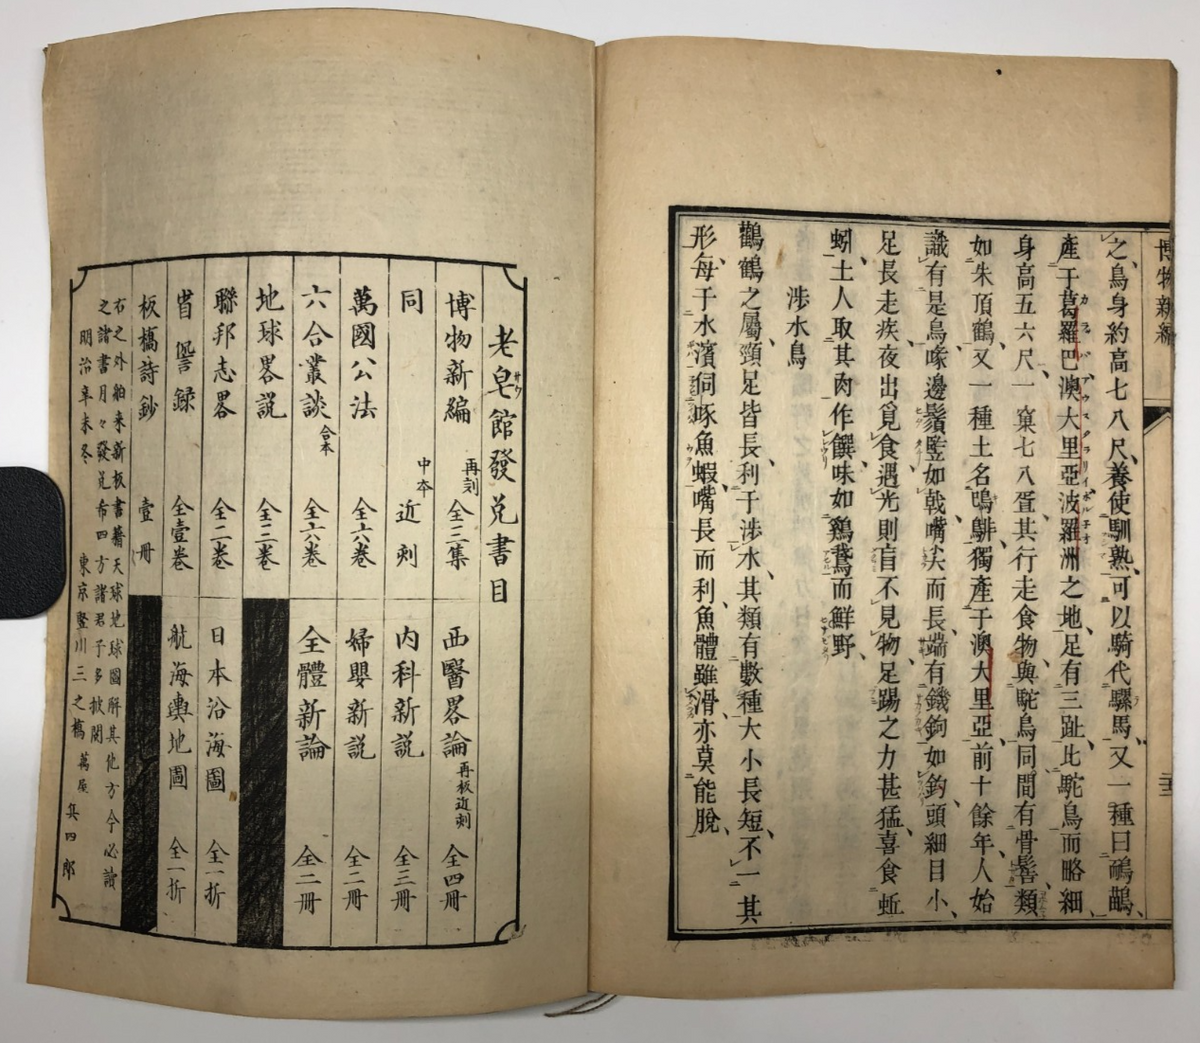 博物新編
之鳥身約高七八尺養使馴熟可以騎代騾馬又一種曰鴯鶓
產于葛羅巴澳大里亞波羅洲之地足有三趾比駝鳥而略細
身高五六尺一窠七八疍其行走食物與駝鳥同間有骨髻類
如朱頂鶴又一種土名鳴鵿獨產于澳大里亞前十餘年人始
識有是鳥喙邊鬚豎如戟嘴尖而長端有鐖鉤如釣頭細目小
足長走疾夜出覓食遇光則盲不見物足踢之力甚猛喜食蚯
蚓土人取其肉作饌味如鷄鵞而鮮野
涉水鳥
鸛鶴之屬頸足皆長利于涉水其類有數種大小長短不一其
形每于水濱伺啄魚蝦嘴長而利魚體雖滑亦莫能脫
老皂館發兌書目
博物新編 再刻 全三集
西醫畧論 再板近刻 全四冊
同 中本 近刻
內科新説 全三冊
萬國公法 全六卷
婦嬰新説 全二冊
六合叢談 合本 全六卷
全體新論 全二冊
地球畧説 全三卷
聯邦志畧 全二卷
日本沿海圖 全一折
省諐録 全壹卷
航海輿地圖 全一折
板橋詩鈔 壹冊
右之外舶来新板書籍天球地球圖解其他方今必讀
之諸書月々發兌布四方諸君子多披閲
明治辛未冬 東京竪川三之橋 萬屋 兵四郎